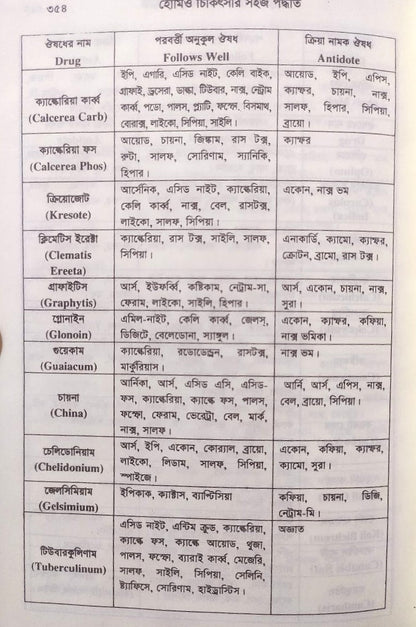 ৩৫৪
হোমিও চিকিৎসার সহজ পদ্ধতি
ঔষধের নাম
Drug
পরবর্তী অনুকূল ঔষধ
Follows Well
ক্রিয়া নাশক ঔষধ
Antidote
ক্যাল্কেরিয়া কার্ব্ব
(Calcerea Carb)
ইপি, এগারি, এসিড নাইট, কেলি বাইক,
গ্রাফাই, ড্রসেরা, ডাল্কা, টিউবার, নাক্স, নেট্রাম
কার্ব্ব, পডো, পালস, প্ল্যাটি, ফস্ফো, বিসমাথ,
বোরাক্স, লাইকো, সিপিয়া, সাইলি।
আয়োড, ইপি, এপিস,
ক্যাম্ফর, চায়না, নাক্স,
সালফ, হিপার, সিপিয়া,
ব্রায়ো।
ক্যাল্কেরিয়া ফস
(Calcerea Phos)
আয়োড, চায়না, জিঙ্কাম, রাস টক্স,
রুটা, সালফ, সোরিণাম, স্যানিকি,
হিপার।
ক্যাম্ফর
ক্রিয়োজোট
(Kresote)
আর্সেনিক, এসিড নাইট, ক্যাল্কেরিয়া,
কেলি কার্ব্ব, নাক্স, বেল, রাসটক্স,
লাইকো, সালফ, সিপিয়া।
একোন, নাক্স ভম
ক্লিমেটিস ইরেক্টা
(Clematis
Ereeta)
ক্যাল্কেরিয়া, রাস টক্স, সাইলি, সালফ,
সিপিয়া।
এনাকার্ডি, ক্যামো, ক্যাম্ফর,
ক্রোটন, ব্রায়ো, রাস টক্স।
গ্রাফাইটিস
(Graphytis)
আর্স, ইউফর্ব্বি, কষ্টিকাম, নেট্রাম-সা,
ফেরাম, লাইকো, সাইলি, হিপার।
আর্স, একোন, চায়না, নাক্স,
সুরা।
গ্লোনাইন
(Glonoin)
এমিল-নাইট, কেলি কার্ব্ব, জেলস,
ডিজিটে, বেলেডোনা, স্যাঙ্গুল।
একোন, ক্যাম্ফর, কফিয়া,
নাক্স ভমিকা।
গুয়েকাম
(Guaiacum)
ক্যাল্কেরিয়া, রডোডেন্ড্রন, রাসটক্স,
মার্কুরিয়াস।
নাক্স ভম।
চায়না
(China)
আর্নিকা, আর্স, এসিড এসি, এসিড-
ফস, ক্যাল্কেরিয়া, ক্যাল্কে ফস, পালস,
ফস্ফো, ফেরাম, ভেরেট্রা, বেল, মার্ক,
নাক্স, সালফ।
আর্নি, আর্স, এপিস, নাক্স,
বেল, ব্রায়ো, সিপিয়া।
চেলিডোনিয়াম
(Chelidonium)
আর্স, ইপি, একোন, কোর‍্যাল, ব্রায়ো,
লাইকো, লিডাম, সালফ, সিপিয়া,
স্পাইজে।
একোন, কফিয়া, ক্যাম্ফর,
ক্যামো, সুরা।
জেলসিমিয়াম
(Gelsimium)
ইপিকাক, ক্যাক্টাস, ব্যাপ্টিসিয়া
কফিয়া, চায়না, ডিজি,
নেট্রাম-মি।
টিউবারকুলিণাম
(Tuberculinum)
এসিড নাইট, এন্টিম ক্রুড, ক্যাল্কেরিয়া,
ক্যাল্কে ফস, ক্যাল্কে আয়োড, থুজা,
পালস, ফস্ফো, ব্যারাই কার্ব্ব, মেজেরি,
সালফ, সাইলি, সিপিয়া, সেলিনি,
ষ্ট্যাফিসে, সোরিণাম, হাইড্রাস্টিস।
অজ্ঞাত